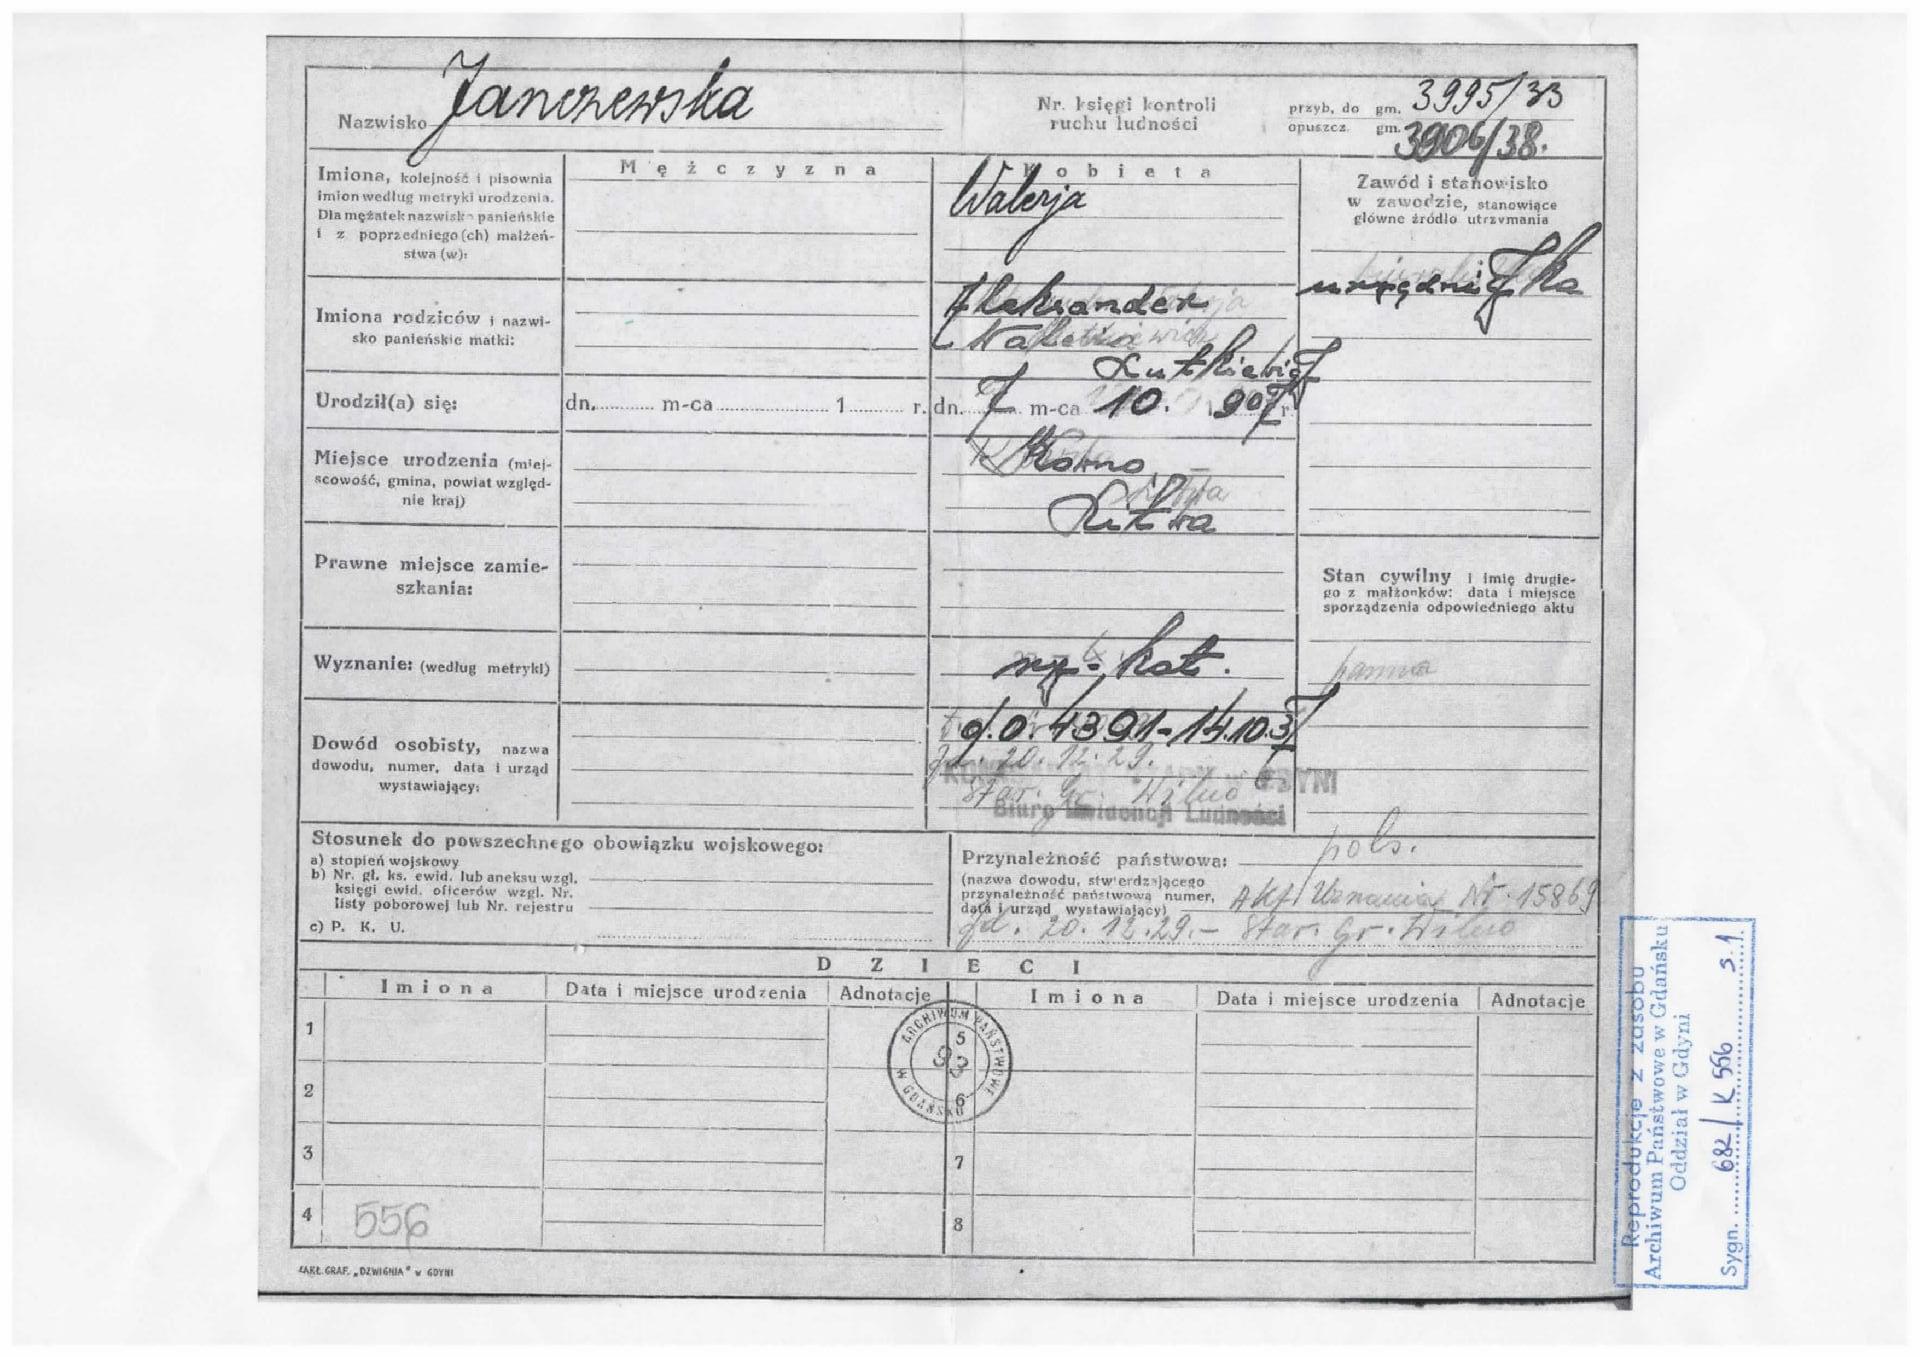 Nazwisko Janczewska
Nr. księgi kontroli
ruchu ludności
przyb. do gm. 3995/33
opuszcz. gm. 3906/38.
Imiona, kolejność i pisownia
imion według metryki urodzenia.
Dla mężatek nazwisko panieńskie
i z poprzedniego (ch) małżeń-
stwa (w):
Mężczyzna
Kobieta
Walerja
Zawód i stanowisko
w zawodzie, stanowiące
główne źródło utrzymania
urzędniczka
Imiona rodziców i nazwi-
sko panieńskie matki:
Aleksander
Rutkiewicz
Urodził(a) się:
dn. m-ca 1 r.
dn. 7 m-ca 10. 1907 r.
Miejsce urodzenia (miej-
scowość, gmina, powiat względ-
nie kraj)
Kowno
Litwa
Litwa
Prawne miejsce zamie-
szkania:
Stan cywilny i imię drugie-
go z małżonków: data i miejsce
sporządzenia odpowiedniego aktu
panna
Wyznanie: (według metryki)
rz.-kat.
Dowód osobisty, nazwa
dowodu, numer, data i urząd
wystawiający:
d.o. 4391-14.10.37
zd. 20.12.29.
Star. Gr. Wilno
W GDYNI
Biuro Ewidencji Ludności
Stosunek do powszechnego obowiązku wojskowego:
a) stopień wojskowy
b) Nr. gł. ks. ewid. lub aneksu wzgl.
księgi ewid. oficerów wzgl. Nr.
listy poborowej lub Nr. rejestru
c) P. K. U.
Przynależność państwowa: pols.
(nazwa dowodu, stwierdzającego
przynależność państwową numer,
data i urząd wystawiający)
Akt Uznania Nr. 15869
zd. 20.12.29.- Star. Gr. Wilno
DZIECI
Imiona Data i miejsce urodzenia Adnotacje Imiona Data i miejsce urodzenia Adnotacje
1 5
2 6
3 7
4 8
556
ARCHIWUM PAŃSTWOWE
W GDAŃSKU
93
ZAKŁ. GRAF. „DŹWIGNIA" w GDYNI
Reprodukcje z zasobu
Archiwum Państwowe w Gdańsku
Oddział w Gdyni
Sygn. 682/K 556 s.1.